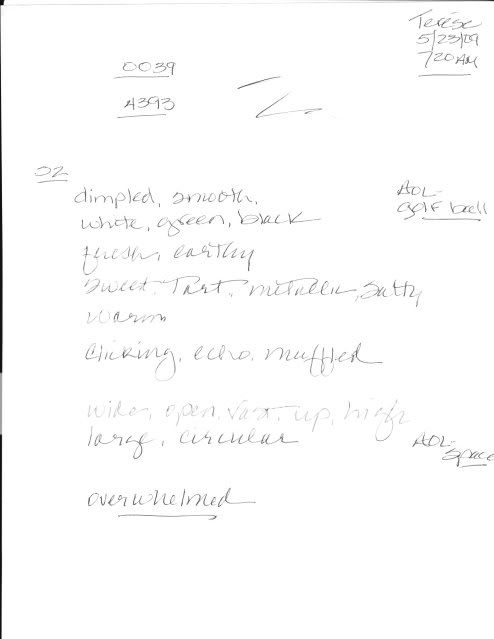 Terése
5/23/09
720 AM
0039
4393
S2
dimpled, smooth,
white, green, black
AOL-
golf ball
fresh, earthy
sweet, Tart, metallic, salty
warm
clicking, echo, muffled
wide, open, vast, up, high
large, circular
AOL-
space
overwhelmed